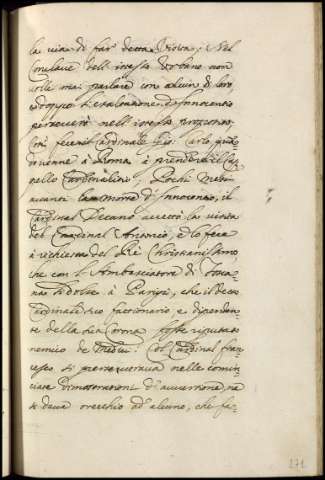 la via di far detta Visita; Nel
Conclave dell'istesso Urbano non
volle mai parlare con alcuni di loro,
e doppo l'esaltatione d'Innocentio
perseverò nell'istesso proposito,
così fece il Cardinale Gio: Carlo, quando
venne à Roma à prendere il Cap
pello Cardinalitio; Pochi Mesi
avanti la morte d'Innocentio, il
Cardinal Decano accettò la visita
del Cardinal Antonio, e lo fece
à richiesta del Rè Christianissimo
che con l'Ambasciatore di Tosca
na si dolse à Parigi, che il detto
Cardinale suo fattionario e dipenden
te della sua Corona fosse riputato
nemico de Medici: Col Cardinal fran
cesco si perseverava nelle comin
ciate dimostrationi d'avversione, nè
si dava orecchio ad alcuno, che fa-
271